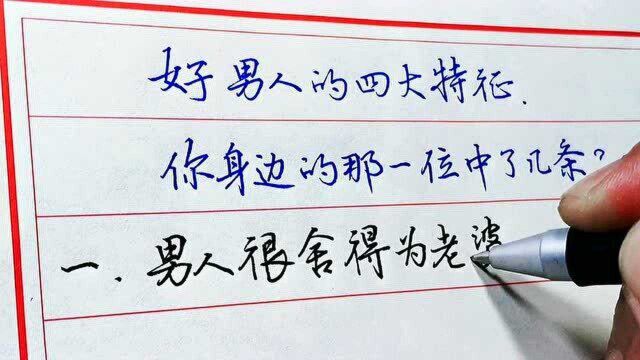 好男人的四大特征.
你身边的那一位中了几条?
一.男人很舍得为老婆